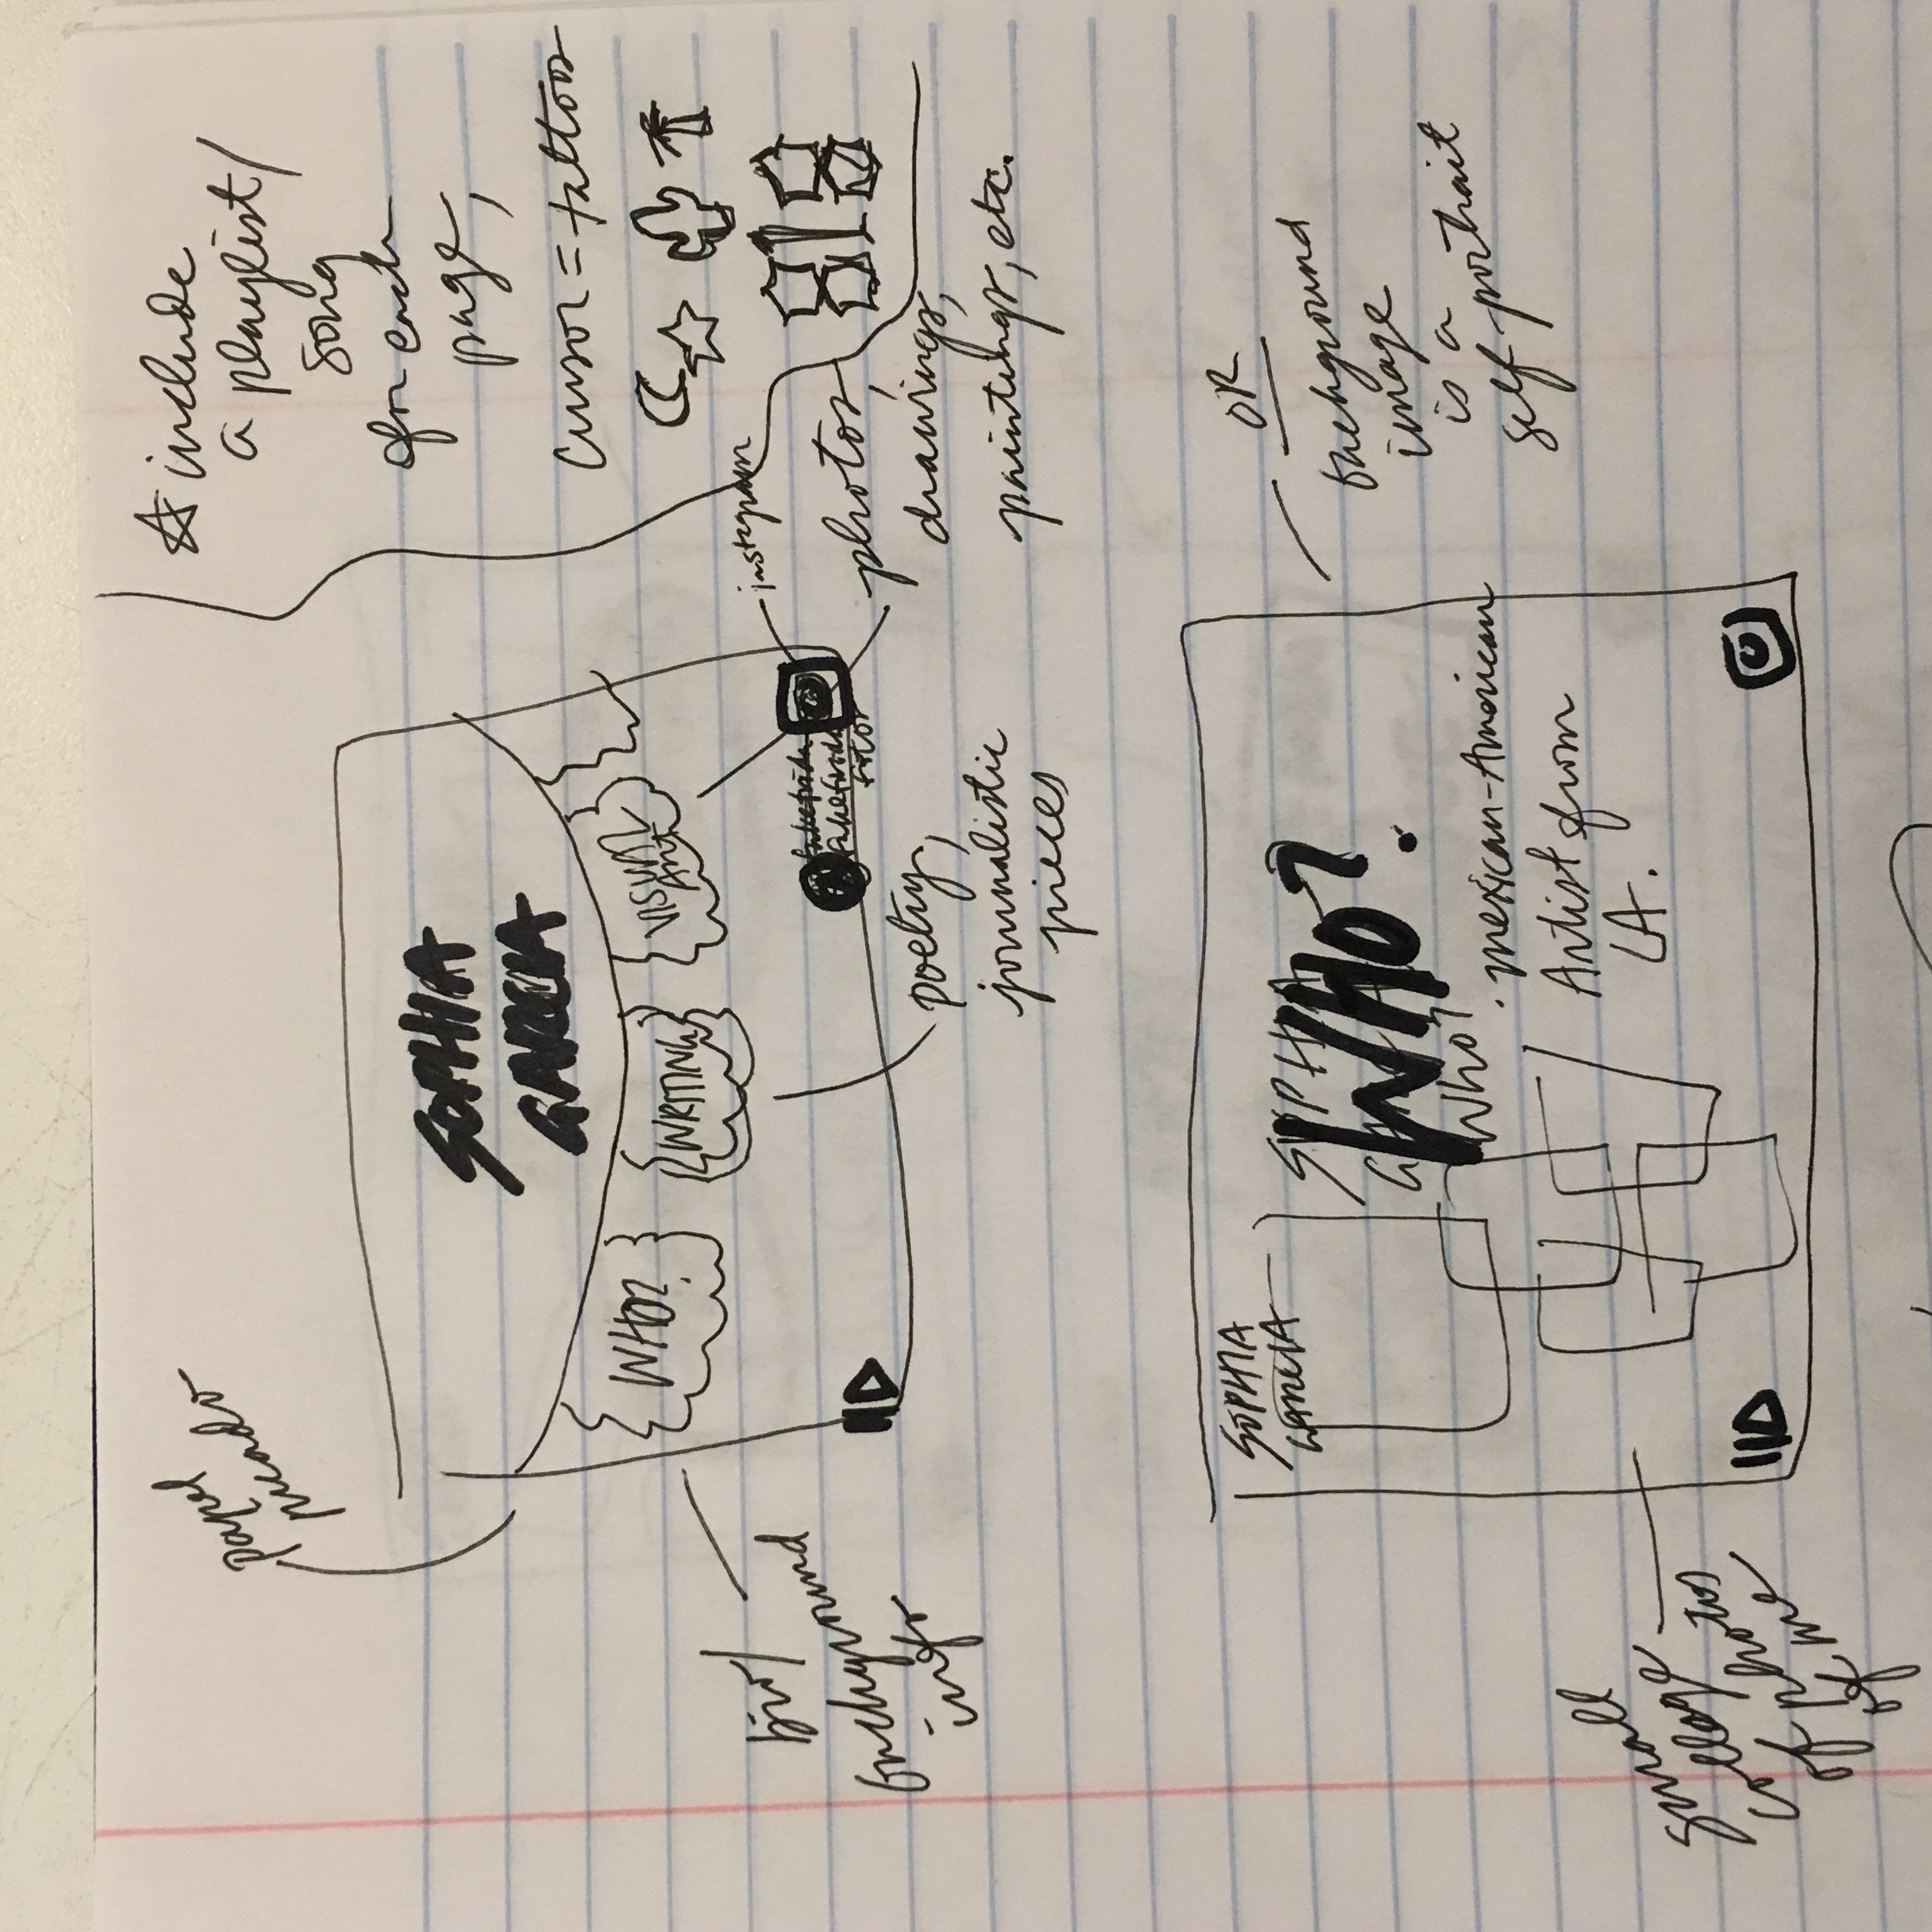 papel
picado
SOPHIA
GARCIA
WHO?
WRITING
VISUAL
Art
instagram
fakefrida
fakefrida
fotos
bio/
background
info
poetry,
journalistic
pieces
photos,
drawings,
paintings, etc.
include
a playlist/
song
for each
page,
cursor = tattoos
818
SOPHIA
GARCIA
SOPHIA
WHO?
Who?
mexican-American
Artist from
LA.
OR
background
image
is a
self-portrait
small
collage
of photos
of me